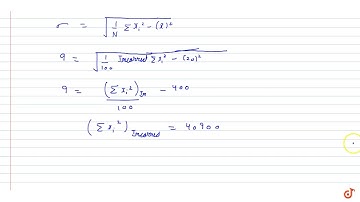 σ = √(1/N Σ xᵢ² − (x̄)²)
9 = √(1/100 Incorrect Σ xᵢ² − (20)²)
9 = (Σ xᵢ²)In / 100 − 400
(Σ xᵢ²) Incorrect = 40900